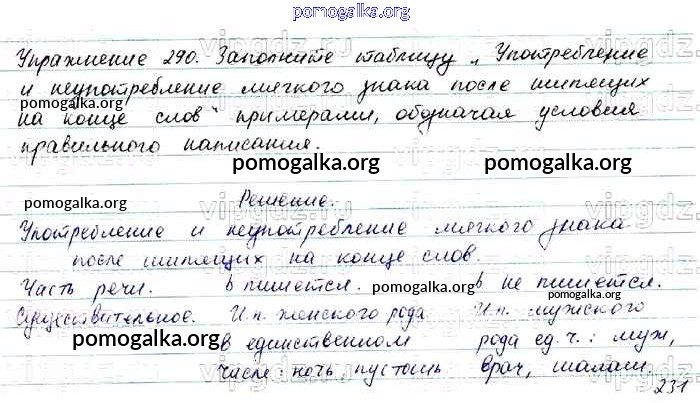 pomogalka.org
Упражнение 290. Заполните таблицу „Употребление
и неупотребление мягкого знака после шипящих
pomogalka.org
на конце слов“ примерами, обозначая условия
правильного написания.
pomogalka.org pomogalka.org
pomogalka.org
Решение.
Употребление и неупотребление мягкого знака
после шипящих на конце слов.
Часть речи. ь пишется. ь не пишется.
pomogalka.org
pomogalka.org
Существительное. И.п. женского рода И.п. мужского
pomogalka.org
в единственном рода ед. ч.: муж,
числе: ночь, пустошь врач, шалаш.
pomogalka.org
231